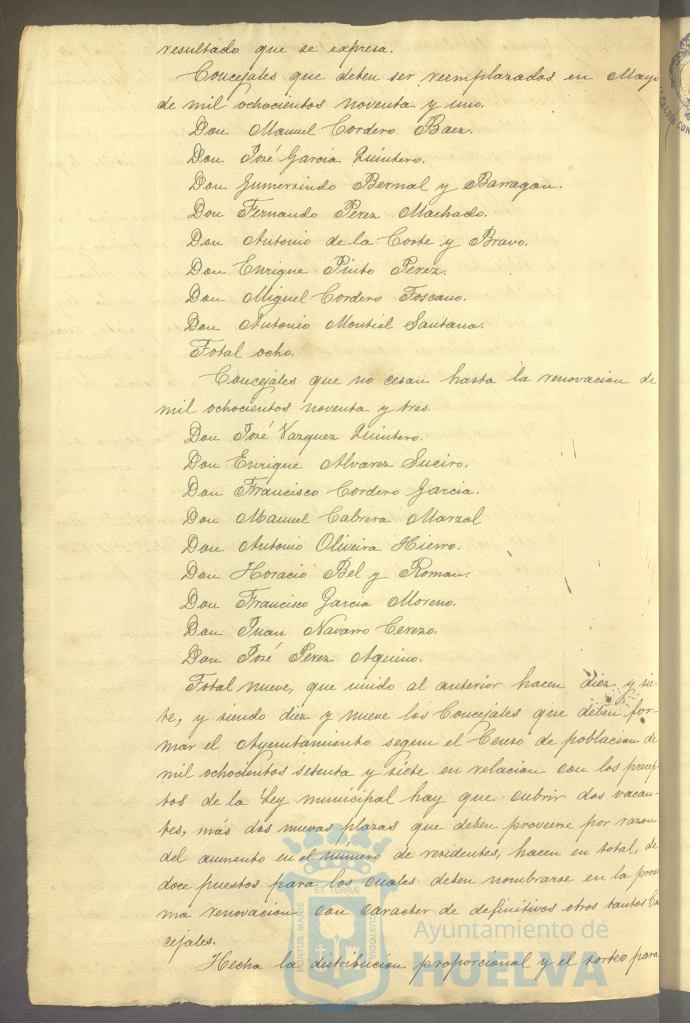 resultado que se expresa.
Concejales que deben ser reemplazados en Mayo
de mil ochocientos noventa y uno.
Don Manuel Cordero Baez.
Don José Garcia Quintero.
Don Gumersindo Bernal y Barragan.
Don Fernando Pérez Machado.
Don Antonio de la Corte y Bravo.
Don Enrique Pinto Perez.
Don Miguel Cordero Toscano.
Don Antonio Montiel Santana.
Total ocho.
Concejales que no cesan hasta la renovacion de
mil ochocientos noventa y tres.
Don José Vazquez Quintero.
Don Enrique Alvarez Sueiro.
Don Francisco Cordero Garcia.
Don Manuel Cabrera Marzal
Don Antonio Oliveira Hierro.
Don Horacio Bel y Roman.
Don Francisco Garcia Moreno.
Don Juan Navarro Cerezo.
Don José Perez Aquino.
Total nueve, que unido al anterior hacen diez y sie-
te, y siendo diez y nueve los Concejales que deben for-
mar el Ayuntamiento segun el Censo de poblacion de
mil ochocientos setenta y siete en relacion con los precep-
tos de la Ley municipal hay que cubrir dos vacan-
tes, más dos nuevas plazas que deben proveerse por razon
del aumento en el número de residentes, hacen en total, de
doce puestos para los cuales deben nombrarse en la proxi
ma renovacion con caracter de definitivos otros tantos Con
cejales.
Hecha la distribucion proporcional y el sorteo para
PORTUS MARIS ET TERRÆ CUSTODIA
Ayuntamiento de
HUELVA